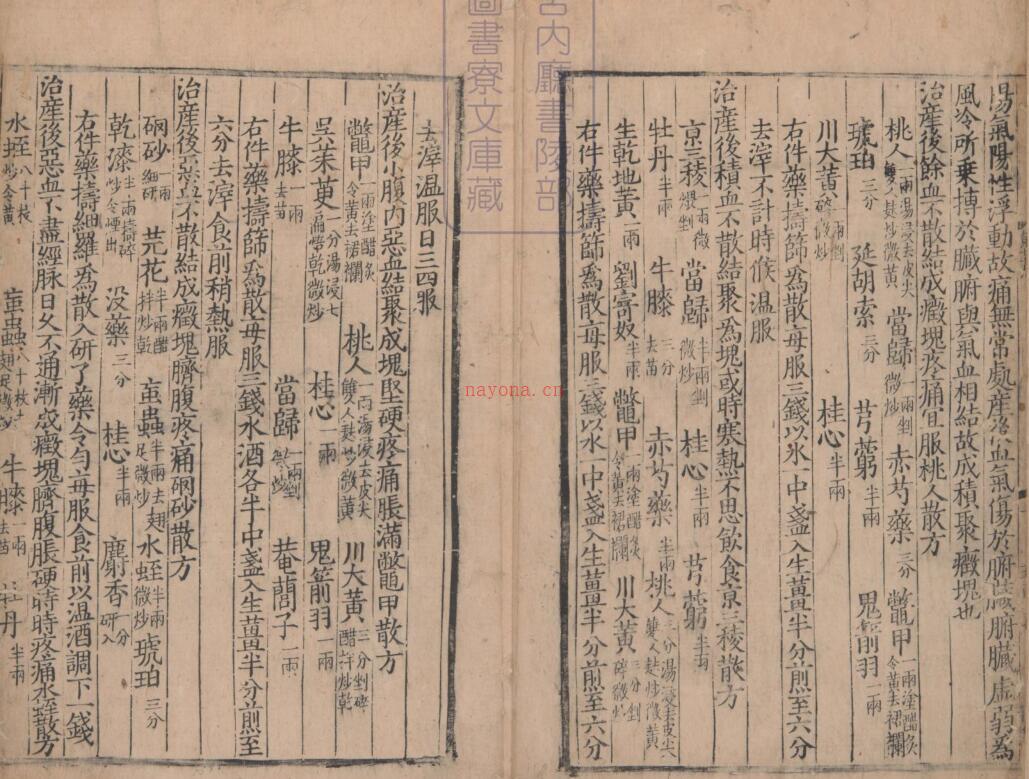 陽氣陽性浮動故痛無常處產後血氣傷於腑臟腑臟虛弱為
風冷所乗搏於臟腑與氣血相結故成積聚癥塊也
治産後餘血不散結成癥塊疼痛宜服桃人散方
桃人一兩湯浸去皮尖雙人麸炒微黄 當歸一兩剉微炒 赤芍藥三分 鼈甲一兩塗醋炙令黄去裙襴
琥珀三分 延胡索三分 芎藭半兩 鬼箭羽一兩
川大黄一兩剉碎微炒 桂心半兩
右件藥擣篩爲散每服三錢以水一中盞入生薑半分煎至六分
去滓不計時候温服
治産後積血不散結聚爲塊或時寒熱不思飲食京三稜散方
京三稜一兩微煨剉 當歸半兩剉微炒 桂心半兩 芎藭半兩
牡丹半兩 牛膝三分去苗 赤芍藥半兩 桃人三分湯浸去皮尖雙人麸炒微黄
生乾地黄一兩 劉寄奴半兩 鼈甲一兩塗醋炙令黄去裙襴 川大黄三分剉碎微炒
右件藥擣篩爲散每服三錢以水一中盞入生薑半分煎至六分
去滓温服日三四服
治産後小腹内惡血結聚成塊堅硬疼痛脹滿鼈甲散方
鼈甲一兩塗醋炙令黄去裙襴 桃人一兩湯浸去皮尖雙人麸炒微黄 川大黄三分剉碎醋拌炒乾
吴茱萸一分湯浸七遍焙乾微炒 桂心一兩 鬼箭羽一兩
牛膝一兩去苗 當歸一兩剉微炒 菴䕡子一兩
右件藥擣篩爲散每服三錢水酒各半中盞入生薑半分煎至
六分去滓食前稍熱服
治産後惡血不散結成癥塊臍腹疼痛硇砂散方
硇砂一兩細研 芫花半兩醋拌炒乾 䖟蟲半兩去翅足微炒 水蛭半兩微炒 琥珀三分
乾漆一兩擣碎炒令煙出 没藥三分 桂心半兩 麝香一分研入
右件藥擣細羅爲散入研了藥令勻每服食前以温酒調下一錢
治産後惡血不盡經脉日久不通漸成癥塊臍腹脹硬時時疼痛水蛭散方
水蛭八十枚炒令黄 䖟蟲八十枚去翅足微炒 牛膝一兩去苗 牡丹半兩
宫内廳書陵部
圖書寮文庫藏
nayona.cn